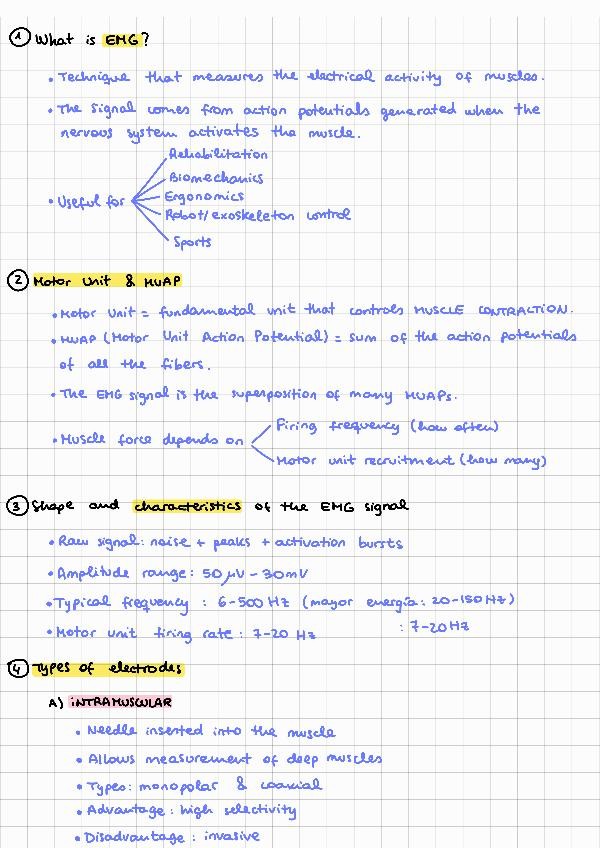 ① What is EMG?
• Technique that measures the electrical activity of muscles.
• The signal comes from action potentials generated when the
nervous system activates the muscle.
• Useful for
Rehabilitation
Biomechanics
Ergonomics
Robot/exoskeleton control
Sports
② Motor Unit & MUAP
• Motor Unit = fundamental unit that controls MUSCLE CONTRACTION.
• MUAP (Motor Unit Action Potential) = sum of the action potentials
of all the fibers.
• The EMG signal is the superposition of many MUAPs.
• Muscle force depends on
Firing frequency (how often)
Motor unit recruitment (how many)
③ Shape and characteristics of the EMG signal
• Raw signal: noise + peaks + activation bursts
• Amplitude range: 50 μV - 30mV
• Typical frequency : 6-500 Hz (mayor energía: 20-150 Hz)
• Motor unit firing rate : 7-20 Hz
: 7-20 Hz
④ Types of electrodes
A) INTRAMUSCULAR
• Needle inserted into the muscle
• Allows measurement of deep muscles
• Types: monopolar & coaxial
• Advantage: high selectivity
• Disadvantage: invasive